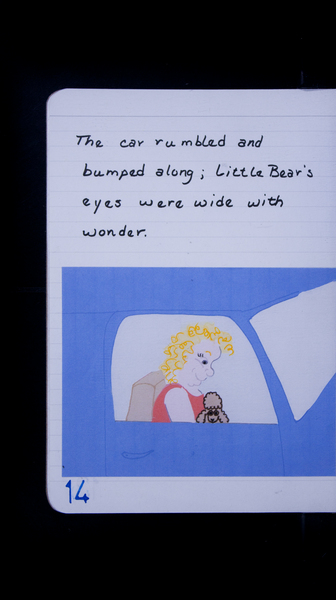 The car rumbled and
bumped along; Little Bear's
eyes were wide with
wonder.
14